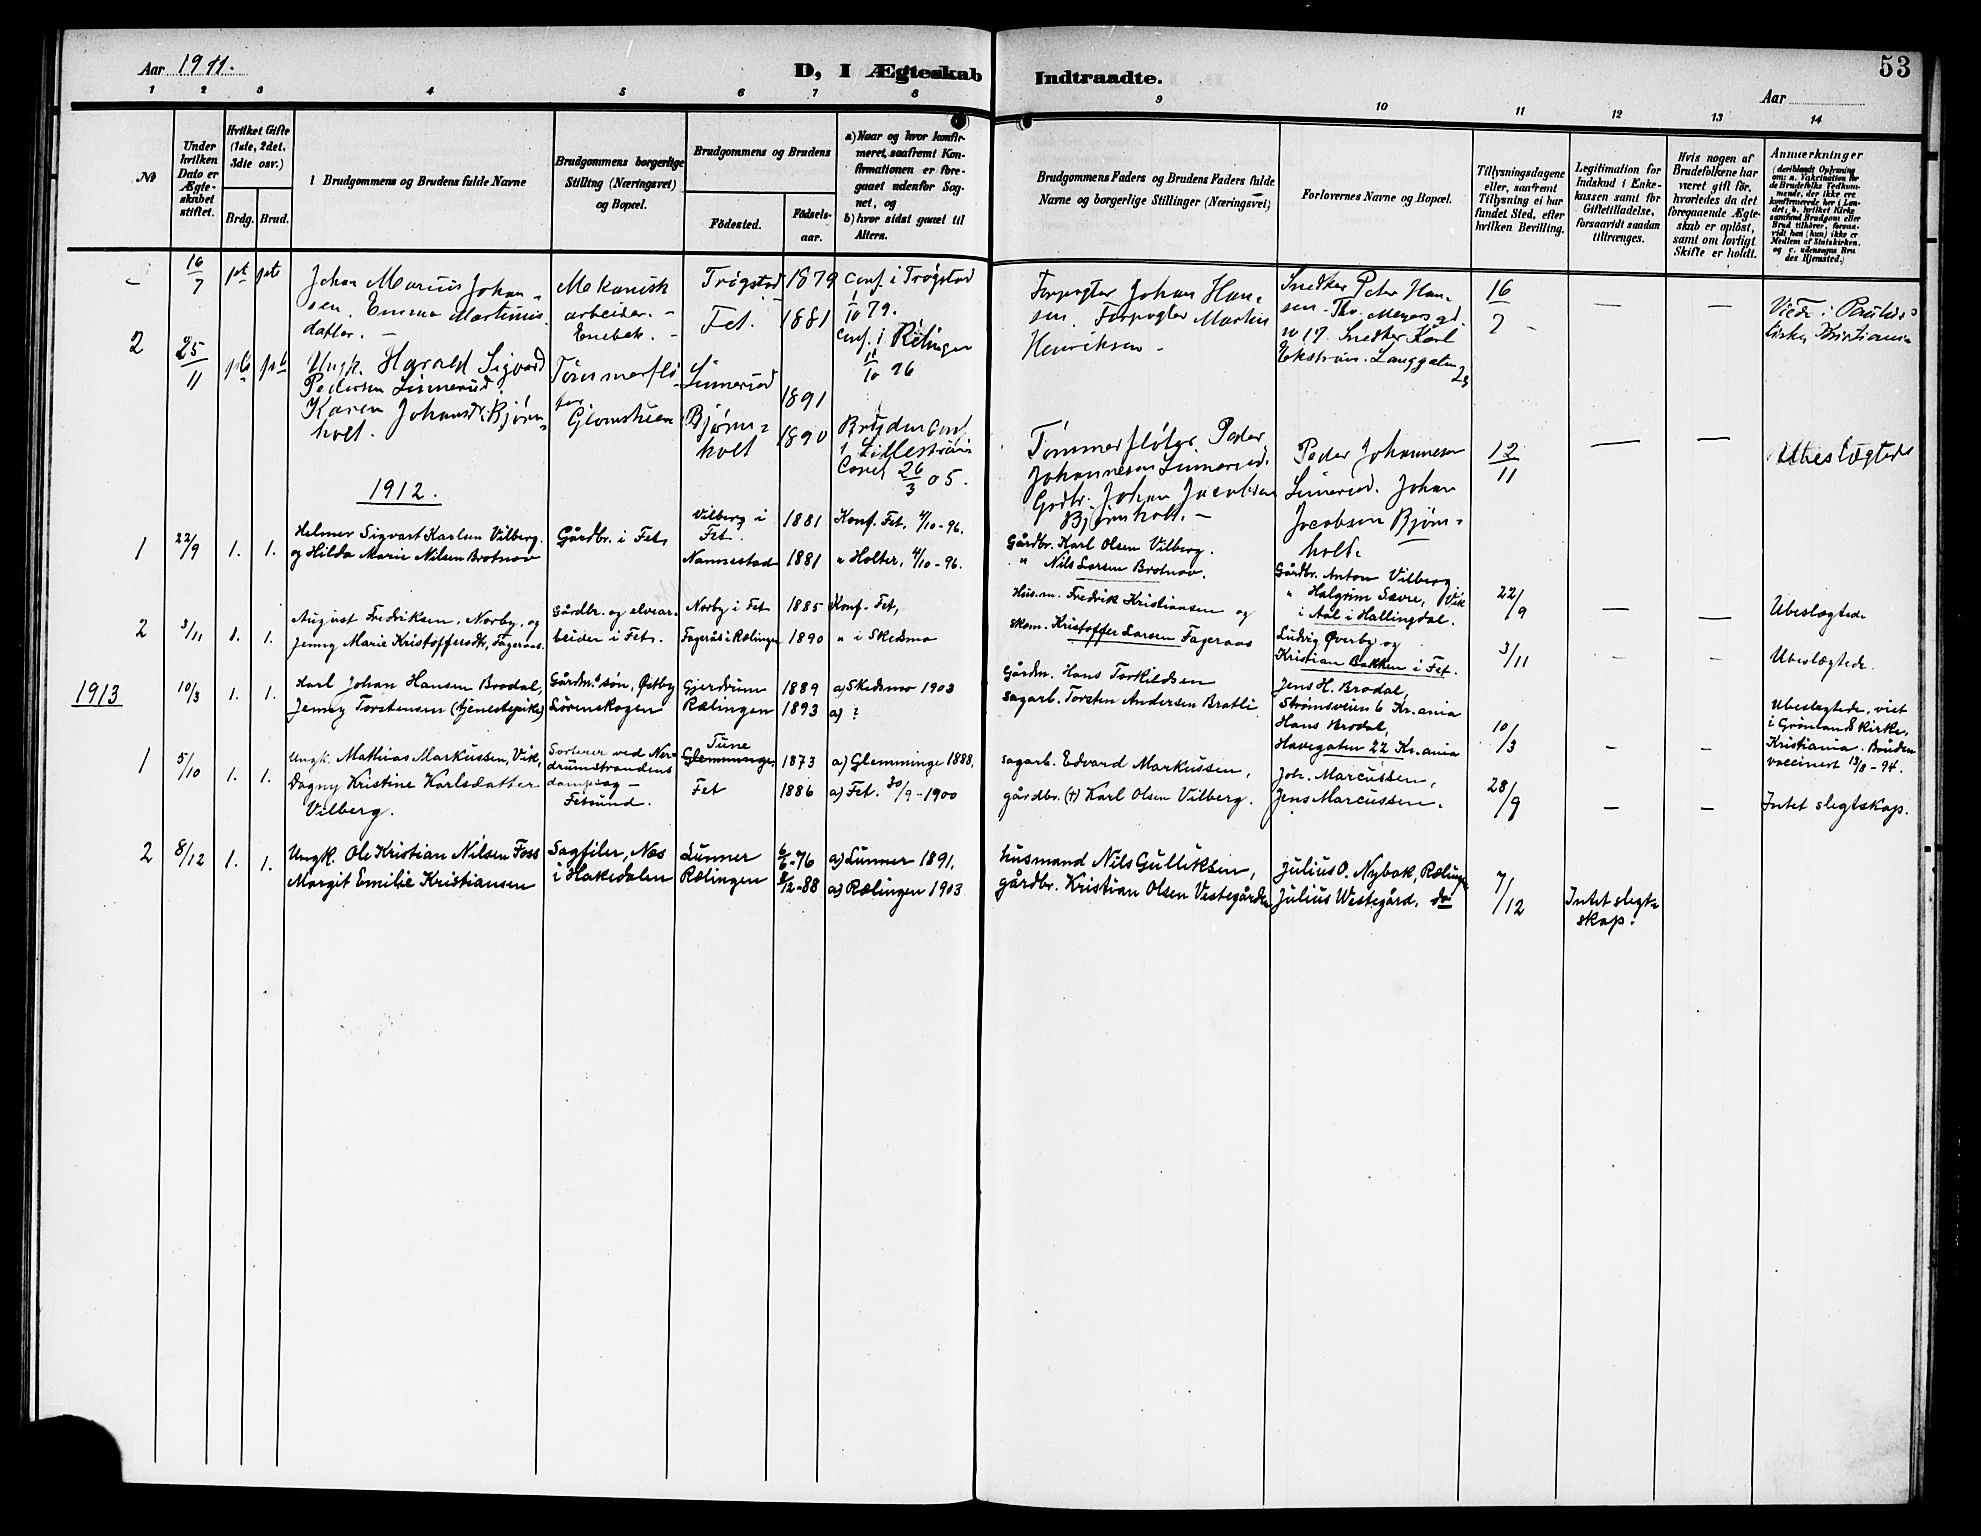 Aar 1911.
D, I Ægteskab
Indtraadte.
53
Aar
1 2 3 4 5 6 7 8
9 10 11 12 13 14
No
Under hvilken Dato er Ægteskabet stiftet.
Hvilket Gifte (1ste, 2det, 3die osv.)
Brdg. Brud.
Brudgommens og Brudens fulde Navne
Brudgommens borgerlige Stilling (Næringsvei) og Bopæl.
Brudgommens og Brudens
Fødested.
Fødsels-aar.
a) Naar og hvor konfirmeret, saafremt Konfirmationen er foregaaet udenfor Sognet, og
b) hvor sidst gaaet til Alters.
Brudgommens Faders og Brudens Faders fulde Navne og borgerlige Stillinger (Næringsvei)
Forlovernes Navne og Bopæl.
Tillysningsdagene eller, saafremt Tillysning ei har fundet Sted, efter hvilken Bevilling.
Legitimation for Indskud i Enkekassen samt for Giftetilladelse, forsaavidt saadan tiltrænges.
Hvis nogen af Brudefolkene har været gift før, hvorledes da det foregaaende Ægteskab er opløst, samt om lovligt Skifte er holdt.
Anmærkninger
(deriblandt Oplysning om: a. Vakcination for de Brudefolks Vedkommende, der ikke ere konfirmerede her i Landet, b. hvilket Kirkesamfund Brudgom eller Brud tilhører, forsaavidt han (hun) ikke er Medlem af Statskirken, og c. udensogns Brudes Hjemsted.)
– 16/7
Johan Marius Johan-
sen. Emma Martinus-
datter. –
Mekanisk
arbeider. –
Enebak. –
Trøgstad 1879
Fet. 1881
Conf. i Trøgstad
1/10 79.
Conf. i Rælingen
11/10 96
Forpagter Johan Han-
sen. Forpagter Martin
Henriksen –
Snedker Peter Han-
sen. Thv. Meyers gd.
no 17. Snedker Karl
Ekstrøm. Langgaten 23
16/7 – – –
Viede i Paulus
kirke, Kristiania
2 25/11
Ungk. Harald Sigvard
Pedersen Linnerud.
Karen Johansdr. Bjørn-
holt.
Tømmerflø-
ter
Glomstuen
Linnerud 1891
Bjørn-
holt 1890
Bruden Conf.
i Lillestrøm
Capel 26/3 05.
Tømmerfløter Peder
Johannesen Linnerud.
Grdbr. Johan Jacobsen
Bjørnholt. –
Peder Johannesen
Linnerud. Johan
Jacobsen Bjørn-
holt.
12/11 – –
Ubeslægtede
1912.
1 22/9 1. 1.
Helmer Sigvart Karlsen Vilberg.
og Hilda Marie Nilsen Brotnov
Gårdbr. i Fet.
Vilberg i Fet. 1881 Konf. Fet, 4/10-96.
Nannestad 1881 " Holter, 4/10-96.
Gårdbr. Karl Olsen Vilberg.
" Nils Larsen Brotnov.
Gårdbr. Anton Vilberg
" Halgrim Sævre, Vik
i Aal i Hallingdal.
22/9 – –
Ubeslægtede
2 3/11 1. 1.
August Fredriksen, Norby, og
Jenny Marie Kristoffersdtr, Fageraas.
Gårdbr. og elvear-
beider i Fet.
Norby i Fet 1885 Konf. Fet,
Fagerås i Rælingen 1890 " i Skedsmo
Hus.m. Fredrik Kristiansen og
Skom. Kristoffer Larsen Fageraas
Ludvig Øverby og
Kristian Bakken i Fet.
3/11 – –
Ubeslægtede.
1913 10/3 1. 1.
Karl Johan Hansen Brodal,
Jenny Torstensen (tjenestepike)
Gårdm.s søn, Østby
Lørenskogen
Gjerdrum 1889 a) Skedsmo 1903
Rælingen 1893 a) ?
Gårdm. Hans Torkildsen
Sagarb. Torsten Andersen Bratli
Jens H. Brodal,
Strømsveien 6 Kr.ania
Hans Brodal,
Havegaten 22 Kr.ania
10/3 – –
Ubeslegtede, viet
i Grønlands kirke,
Kristiania. Bruden
vaccinert 13/8-94.
1 5/10 1. 1.
Ungk. Mathias Markussen, Vik,
Dagny Kristine Karlsdatter
Vilberg.
Sorterer ved Nor-
drumstrandens
dampsag –
Fetsund.
Tune
Glemminge 1873 a) Glemminge 1888,
Fet 1886 a) Fet. 30/9-1900
Sagarb. Edvard Markussen,
gårdbr. (†) Karl Olsen Vilberg.
Joh. Marcussen,
Jens Marcussen.
28/9 – –
Intet slegtskap.
2 8/12 1. 1.
Ungk. Ole Kristian Nilsen Foss
Margit Emilie Kristiansen
Sagfiler, Næs
i Hakedalen
Lunner 6/6-76 a) Lunner 1891,
Rælingen 2/12-88 a) Rælingen 1903
Husmand Nils Gulliksen,
gårdbr. Kristian Olsen Vestegården
Julius O. Nybak, Rælingen
Julius Westegård. do
7/12
Intet slegt-
skap.